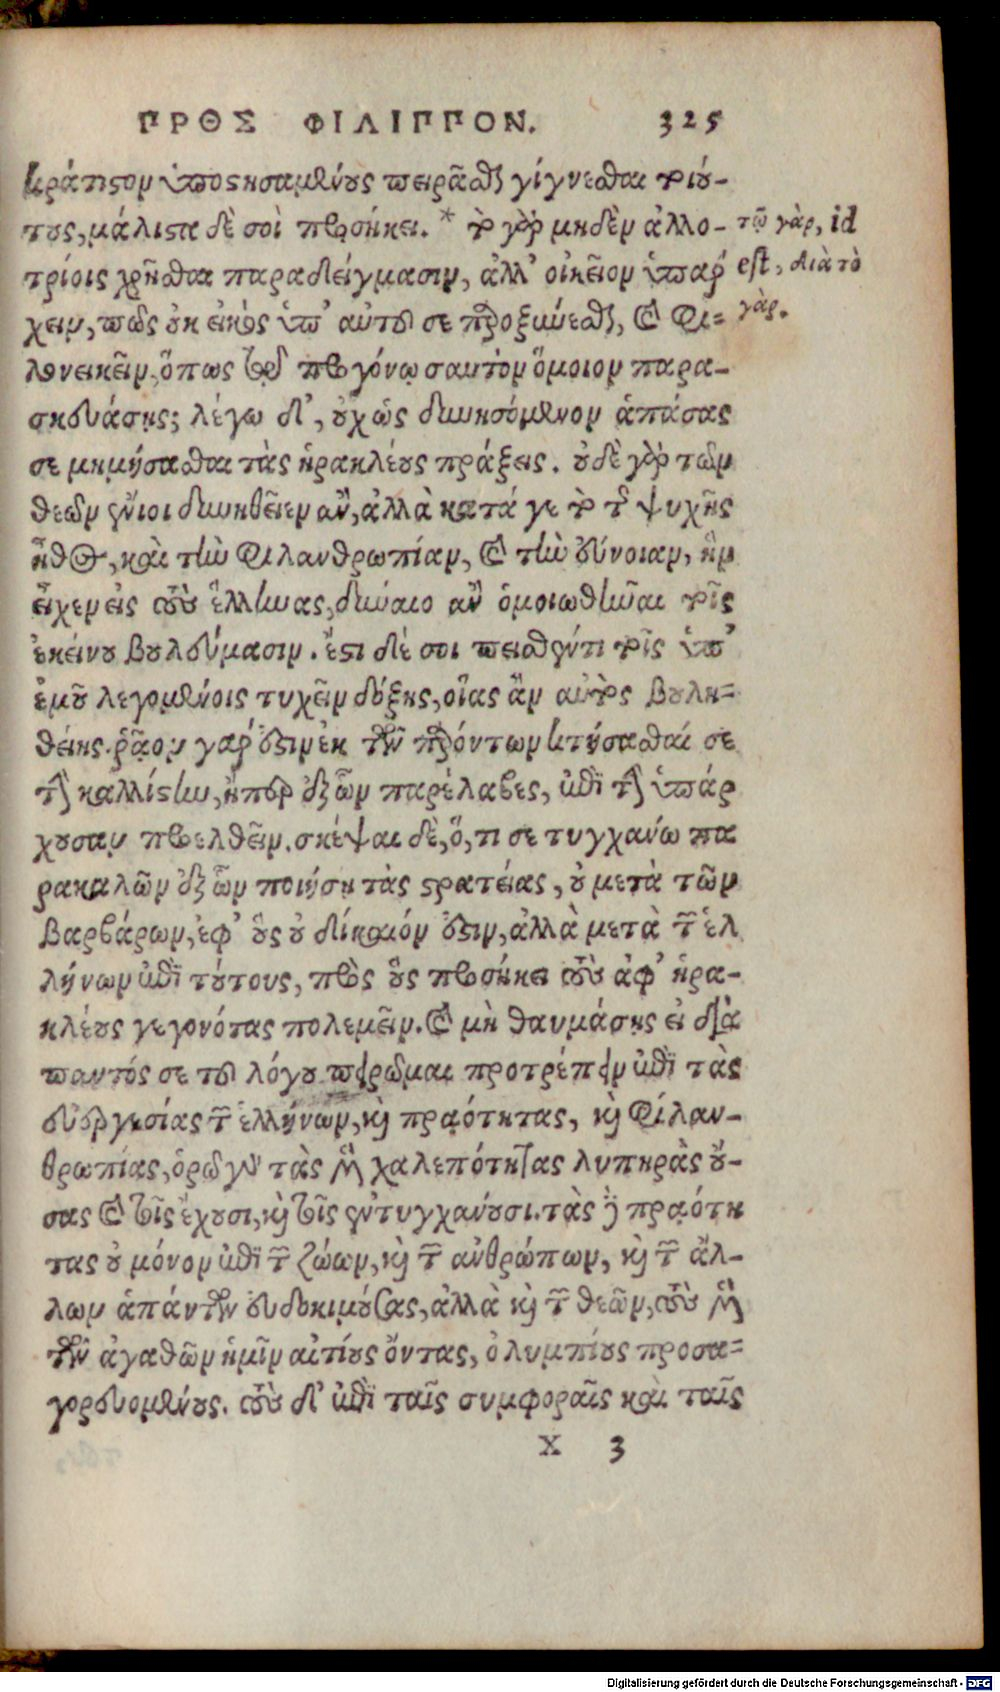 ΠΡΘΣ ΦΙΛΙΠΠΟΝ. 325
κράτιστον ὑποστησαμένους πειρᾶσθαι γίγνεσθαι τοιού-
τους, μάλιστα δὲ σοὶ προσήκει. * τὸ γὰρ μηδὲν ἀλλο-
τρίοις χρῆσθαι παραδείγμασιν, ἀλλ' οἰκεῖον ὑπάρ
χειν, πῶς οὐκ εἰκὸς ὑπ' αὐτοῦ σε παροξύνεσθαι, καὶ φι-
λονεικεῖν, ὅπως τῷ προγόνῳ σαυτὸν ὅμοιον παρα-
σκευάσῃς; λέγω δ', οὐχ ὡς δυνησόμενον ἁπάσας
σε μιμήσασθαι τὰς ἡρακλέους πράξεις. οὐδὲ γὰρ τῶν
θεῶν ἔνιοι δυνηθεῖεν ἂν, ἀλλὰ κατά γε τὸ τῆς ψυχῆς
ἦθος, καὶ τὴν φιλανθρωπίαν, καὶ τὴν εὔνοιαν, ἣν
εἶχεν εἰς τοὺς ἕλληνας, δύναιο ἂν ὁμοιωθῆναι τοῖς
ἐκείνου βουλεύμασιν. ἔστι δέ σοι πεισθέντι τοῖς ὑπ'
ἐμοῦ λεγομένοις τυχεῖν δόξης, οἵας ἂν αὐτὸς βουλη-
θείης. ῥᾷον γάρ ἐστιν ἐκ τῶν παρόντων κτήσασθαί σε
τὴν καλλίστην, ἢ περ ἐξ ὧν παρέλαβες, ἐπὶ τὴν ὑπάρ
χουσαν προελθεῖν. σκέψαι δὲ, ὅ, τι σε τυγχάνω πα
ρακαλῶν ἐξ ὧν ποιήσῃ τὰς στρατείας, οὐ μετὰ τῶν
βαρβάρων, ἐφ' οὓς οὐ δίκαιόν ἐστιν, ἀλλὰ μετὰ τῶν ἑλ
λήνων ἐπὶ τούτους, πρὸς οὓς προσήκει τοὺς ἀφ' ἡρα-
κλέους γεγονότας πολεμεῖν. καὶ μὴ θαυμάσῃς εἰ διὰ
παντός σε τοῦ λόγου πειρῶμαι προτρέπειν ἐπὶ τὰς
εὐεργεσίας τῶν ἑλλήνων, καὶ πραότητας, καὶ φιλαν-
θρωπίας, ὁρῶ γὰρ τὰς μὲν χαλεπότητας λυπηρὰς οὔ-
σας καὶ τοῖς ἔχουσι, καὶ τοῖς ἐντυγχάνουσι. τὰς δὲ πραότη
τας οὐ μόνον ἐπὶ τῶν ζώων, καὶ τῶν ἀνθρώπων, καὶ τῶν ἄλ-
λων ἁπάντων εὐδοκιμούσας, ἀλλὰ καὶ τῶν θεῶν, τοὺς μὲν
τῶν ἀγαθῶν ἡμῖν αἰτίους ὄντας, ὀλυμπίους προσα-
γορευομένους. τοὺς δ' ἐπὶ ταῖς συμφοραῖς καὶ ταῖς
X 3
τῷ γὰρ, id
est, διὰ τὸ
γάρ.
Digitalisierung gefördert durch die Deutsche Forschungsgemeinschaft - DFG